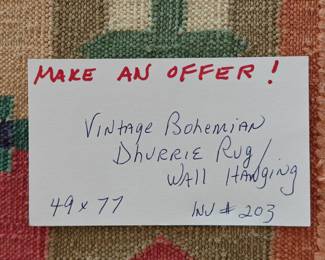 MAKE AN OFFER!
VINTAGE BOHEMIAN
DHURRIE RUG/
WALL HANGING
49 x 77 INV # 203